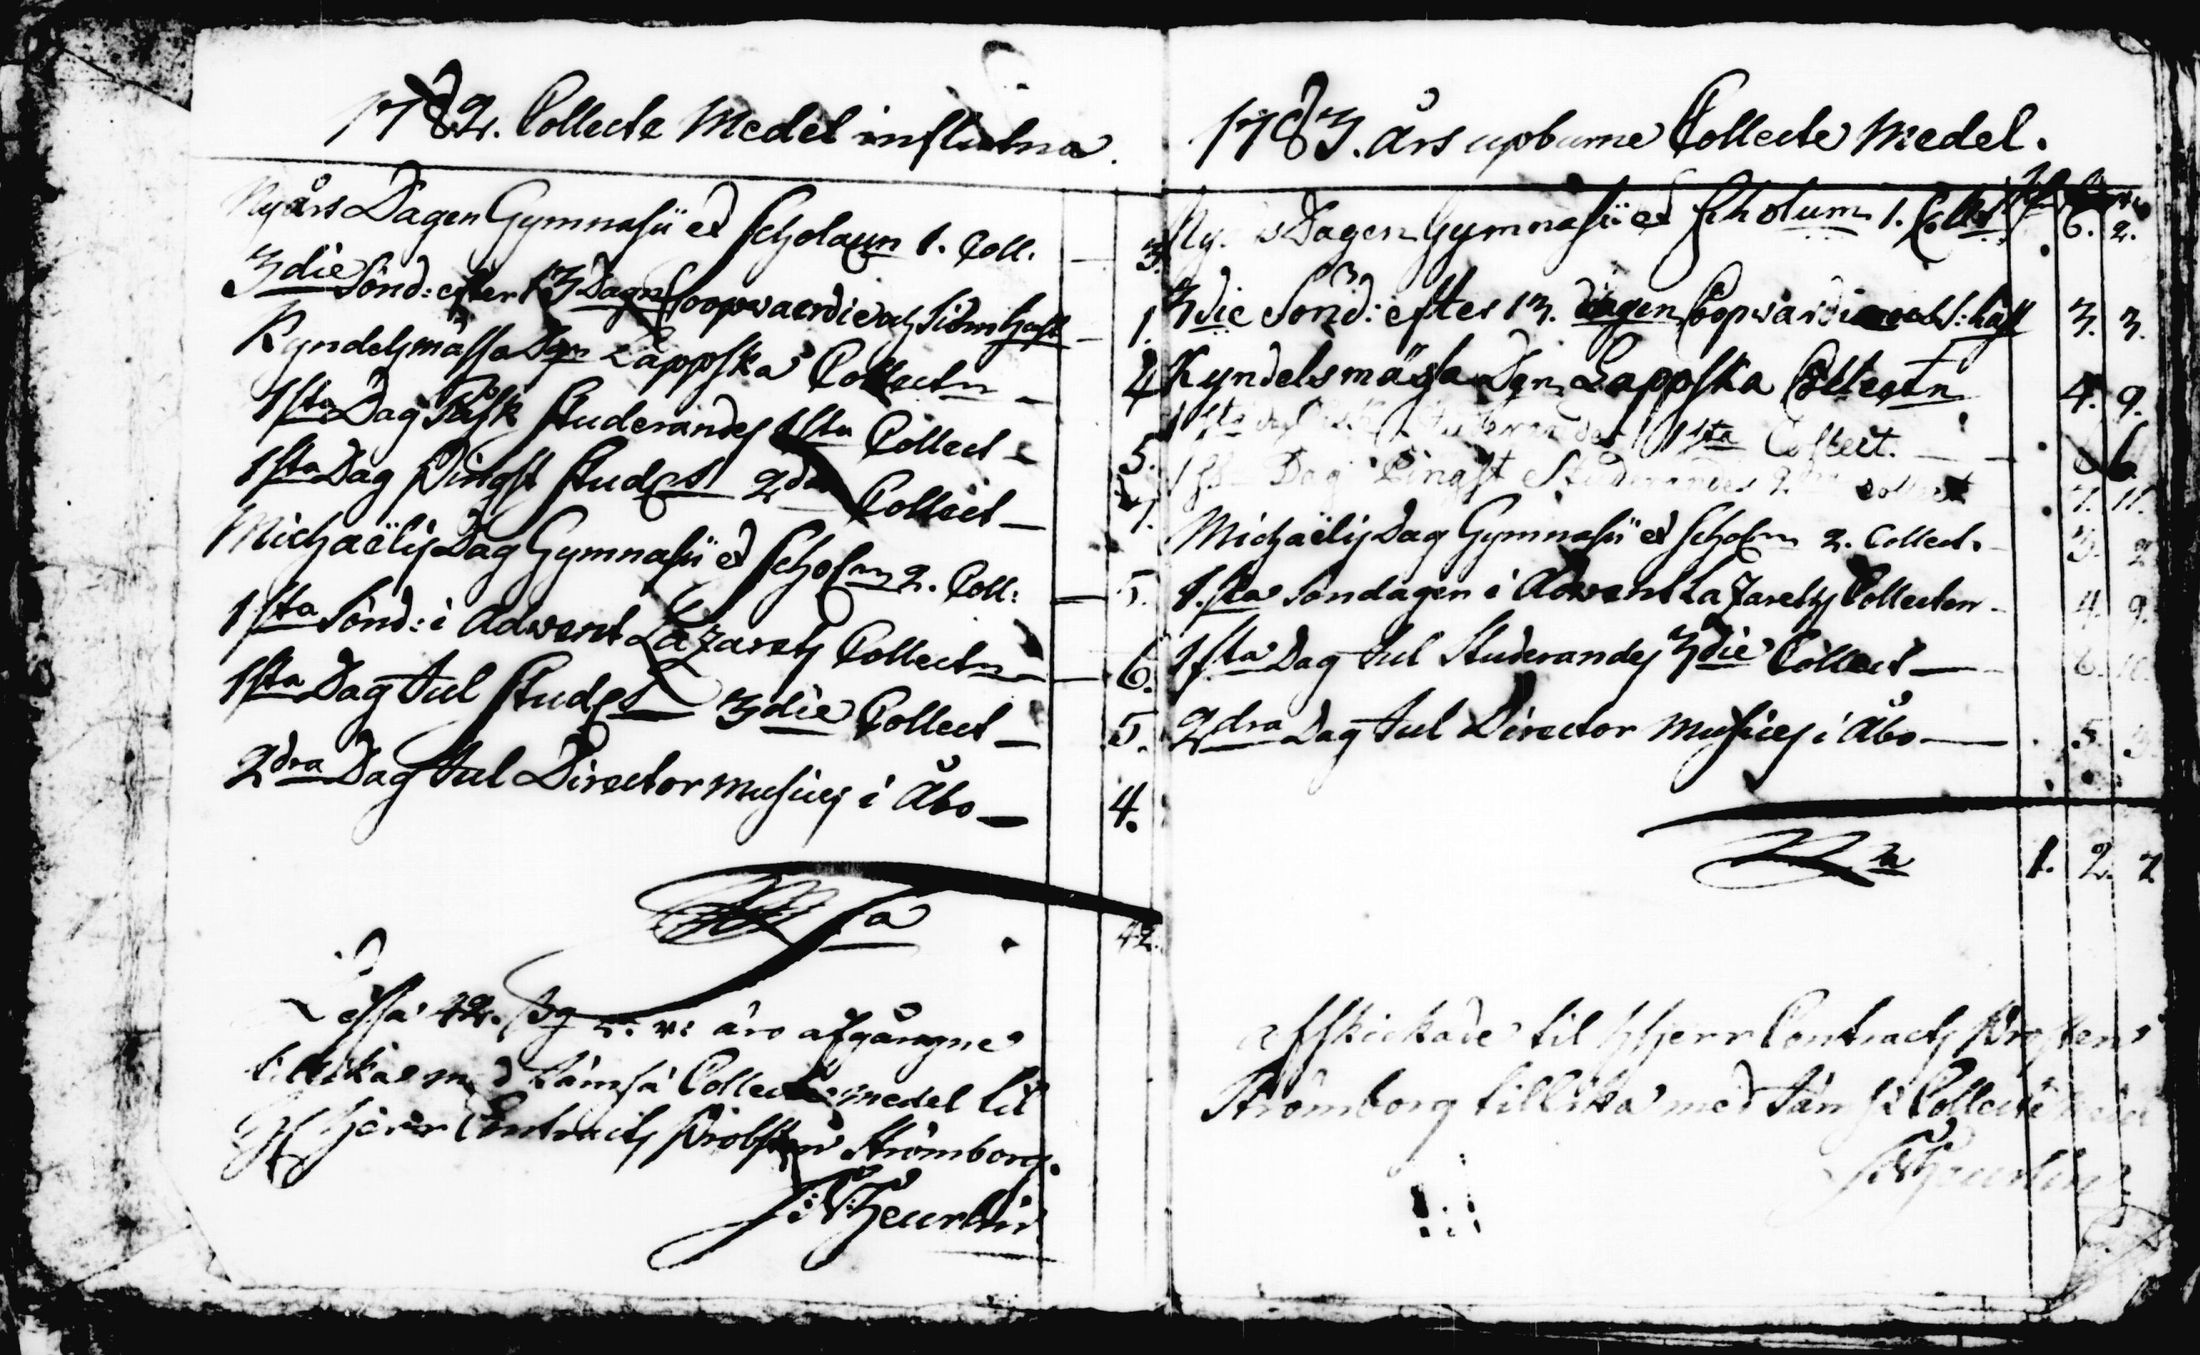 1782. Collecte Medel influtna.
Nyårs Dagen Gymnasii et Scholarum 1. Coll. — 3.
3die Sönd: efter 13 Dagn Coopvaerdie och Siömhuset — 1.
Kyndelsmässo Dgn Lappska Collectn — 4
1sta Dag Påsk Studerandes 1sta Collect — 5.
1sta Dag Pingst Studes 2dra Collect — 7.
Michaëlis Dag Gymnasii et Scholrm 2. Coll: — 5.
1sta Sönd: i Advent Lazarets Collectn — 6.
1sta Dag Jul Studes 3die Collect — 5.
2dra Dag Jul Director Musices i Åbo — 4.
Sa 42.
Dessa 42. äro afgångne
tillika med Jämsä Collecte medel til
H Herr Contracts Probsten Strömborg.
Heurlin
1783. Års upburne Collecte Medel.
Nyårs Dagen Gymnasii et Scholarum 1. Coll. 6. 2.
3die Sönd: efter 13. dagen Coopvardie 3. 3.
Kyndelsmässo Dgn Lappska Collectn 4. 9.
1sta Studerandes 1sta Collect. — 6.
1sta Dag Pingst Studerandes 2dra Collect 7. 11.
Michaëlis Dag Gymnasii et Scholrm 2. Collect. 3. 2
1.sta Söndagen i Advent Lazarets Collecten 4. 9.
1sta Dag Jul Studerandes 3die Collect — 6. 10.
2dra Dag Jul Director Musices i Åbo — 5.
1. 2. 7
afskickade til HHerr Contracts Prosten
Strömborg tillika med Jämsä Collecte
Heurlin